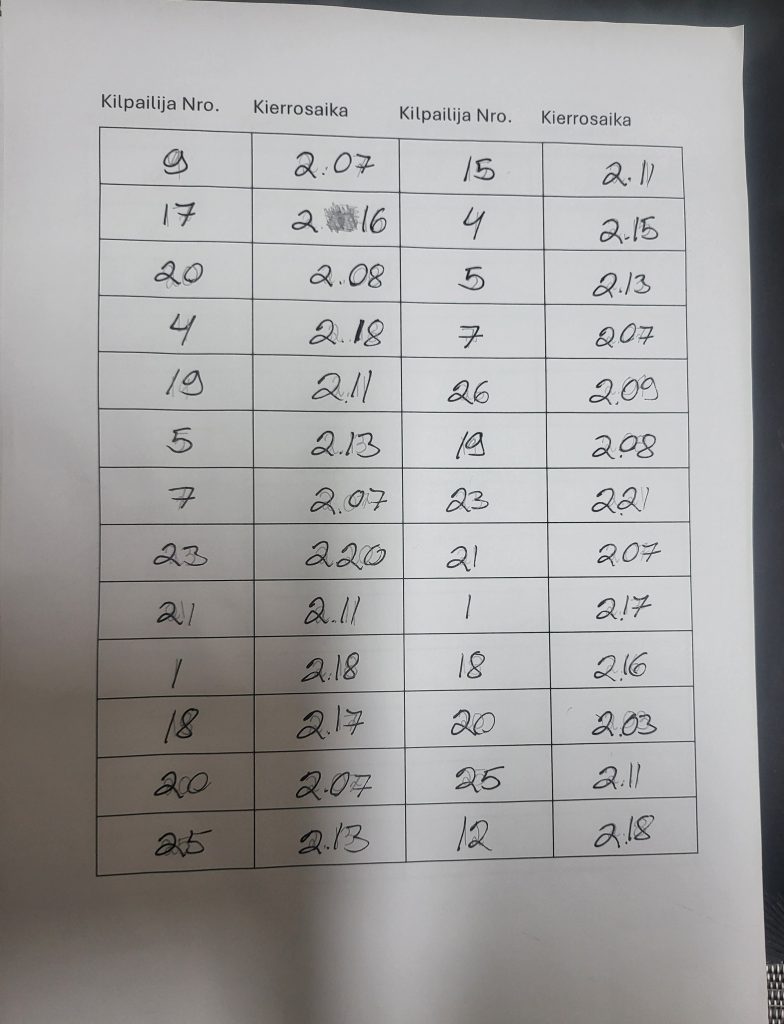 Kilpailija Nro. Kierrosaika Kilpailija Nro. Kierrosaika
9 2.07 15 2.11
17 2.16 4 2.15
20 2.08 5 2.13
4 2.18 7 2.07
19 2.11 26 2.09
5 2.13 19 2.08
7 2.07 23 2.21
23 2.20 21 2.07
21 2.11 1 2.17
1 2.18 18 2.16
18 2.17 20 2.03
20 2.07 25 2.11
25 2.13 12 2.18